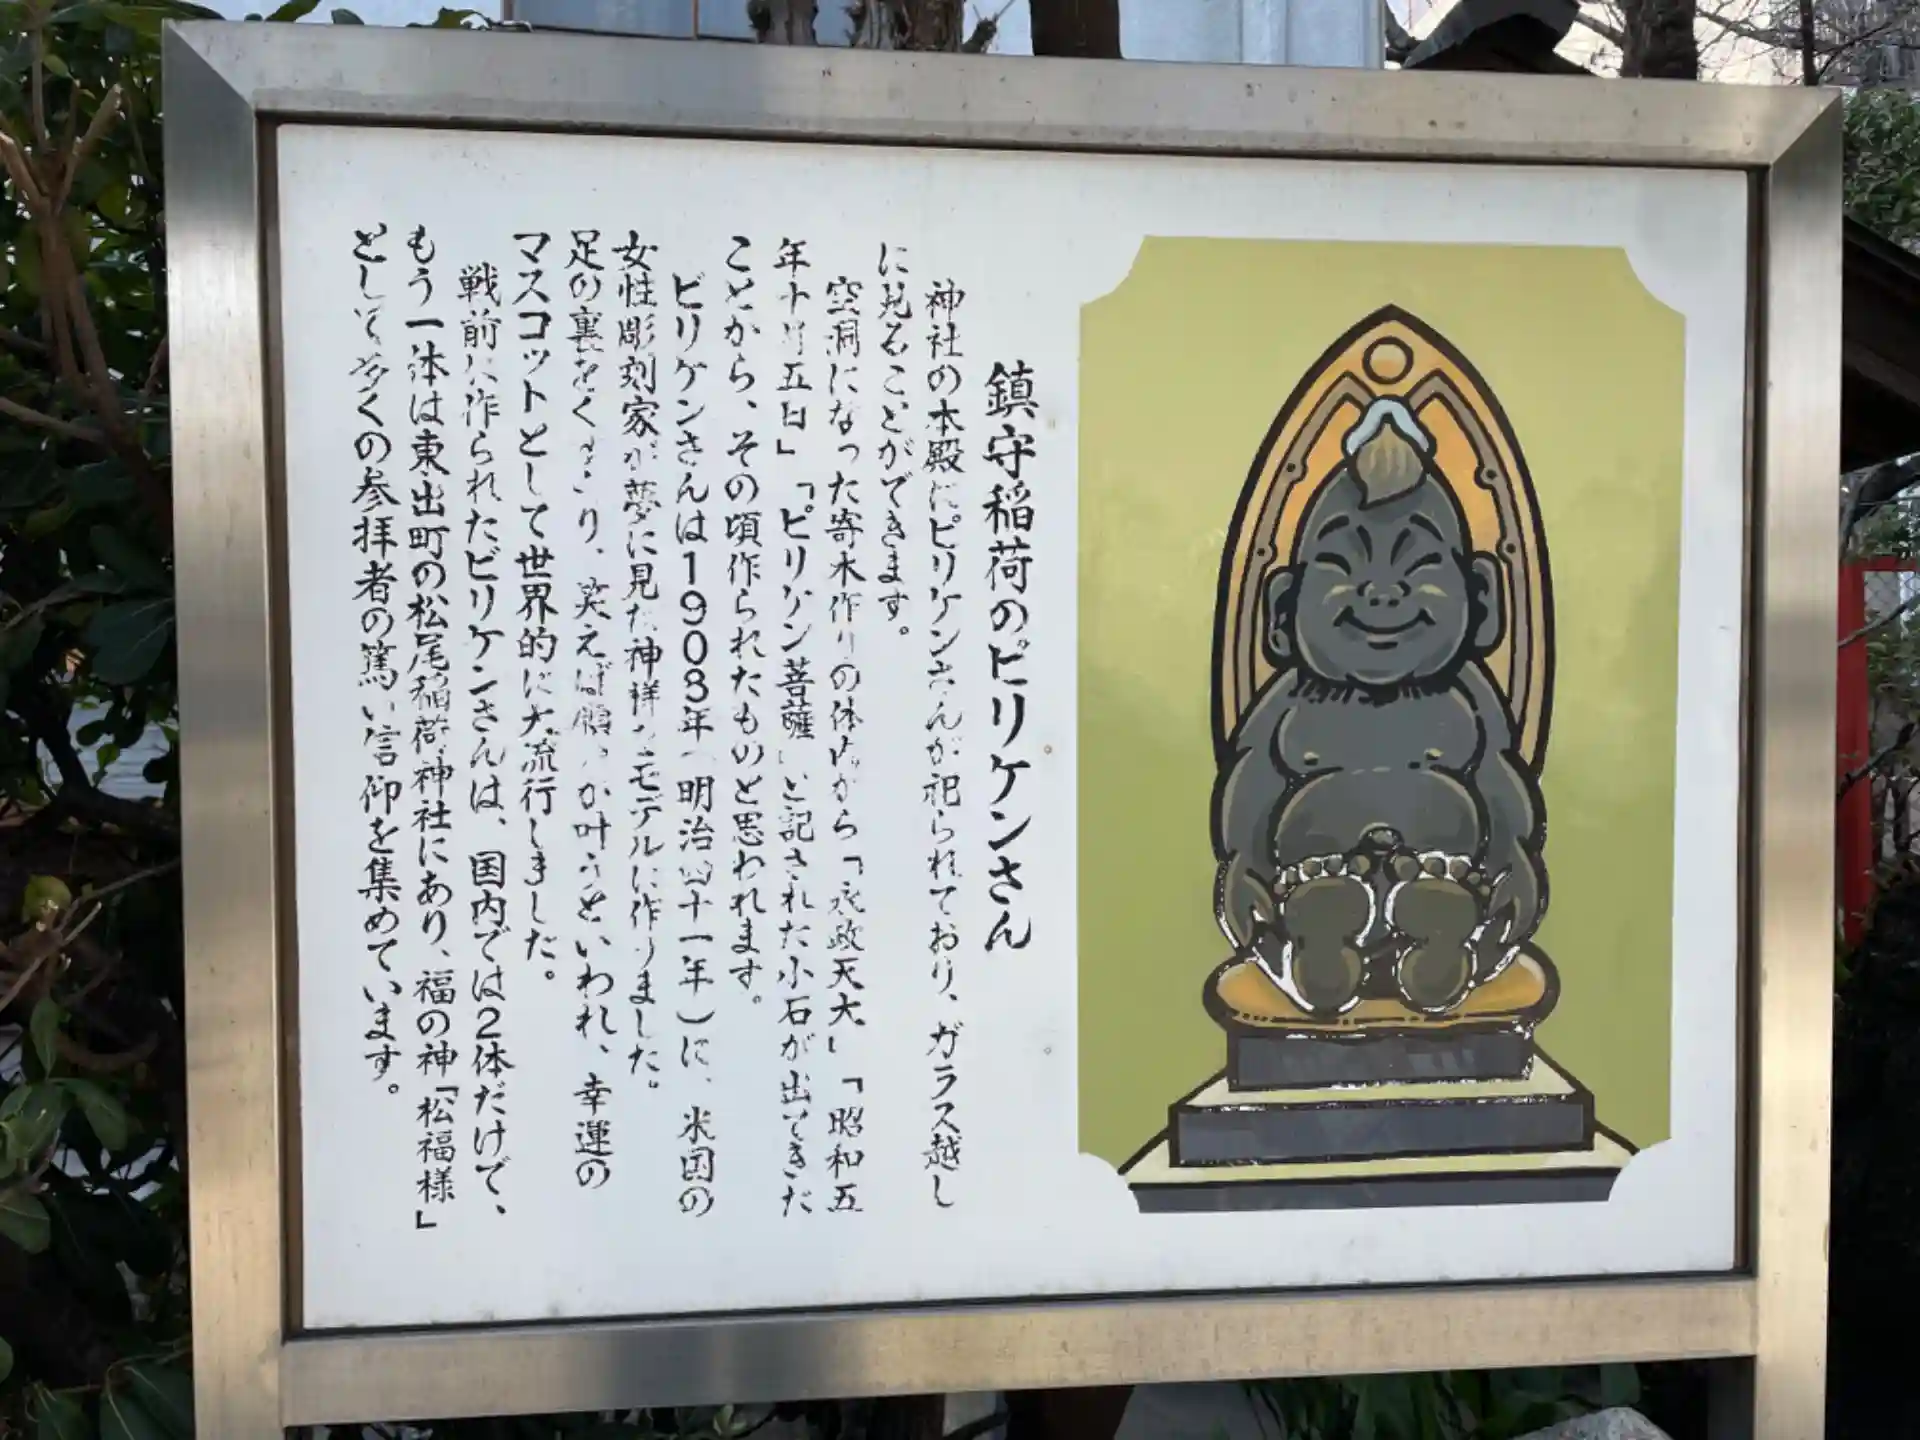 鎮守稲荷のビリケンさん
神社の本殿にビリケンさんが祀られており、ガラス越し
に見ることができます。
空洞になった寄木作りの体内から「 政天大」「昭和五
年十月五日」「ビリケン菩薩」と記された小石が出てきた
ことから、その頃作られたものと思われます。
ビリケンさんは1908年(明治四十一年)に、米国の
女性彫刻家が夢に見た神様をモデルに作りました。
足の裏をくすぐり、笑えば願いが叶うといわれ、幸運の
マスコットとして世界的に大流行しました。
戦前に作られたビリケンさんは、国内では2体だけで、
もう一体は東出町の松尾稲荷神社にあり、福の神「松福様」
として多くの参拝者の篤い信仰を集めています。